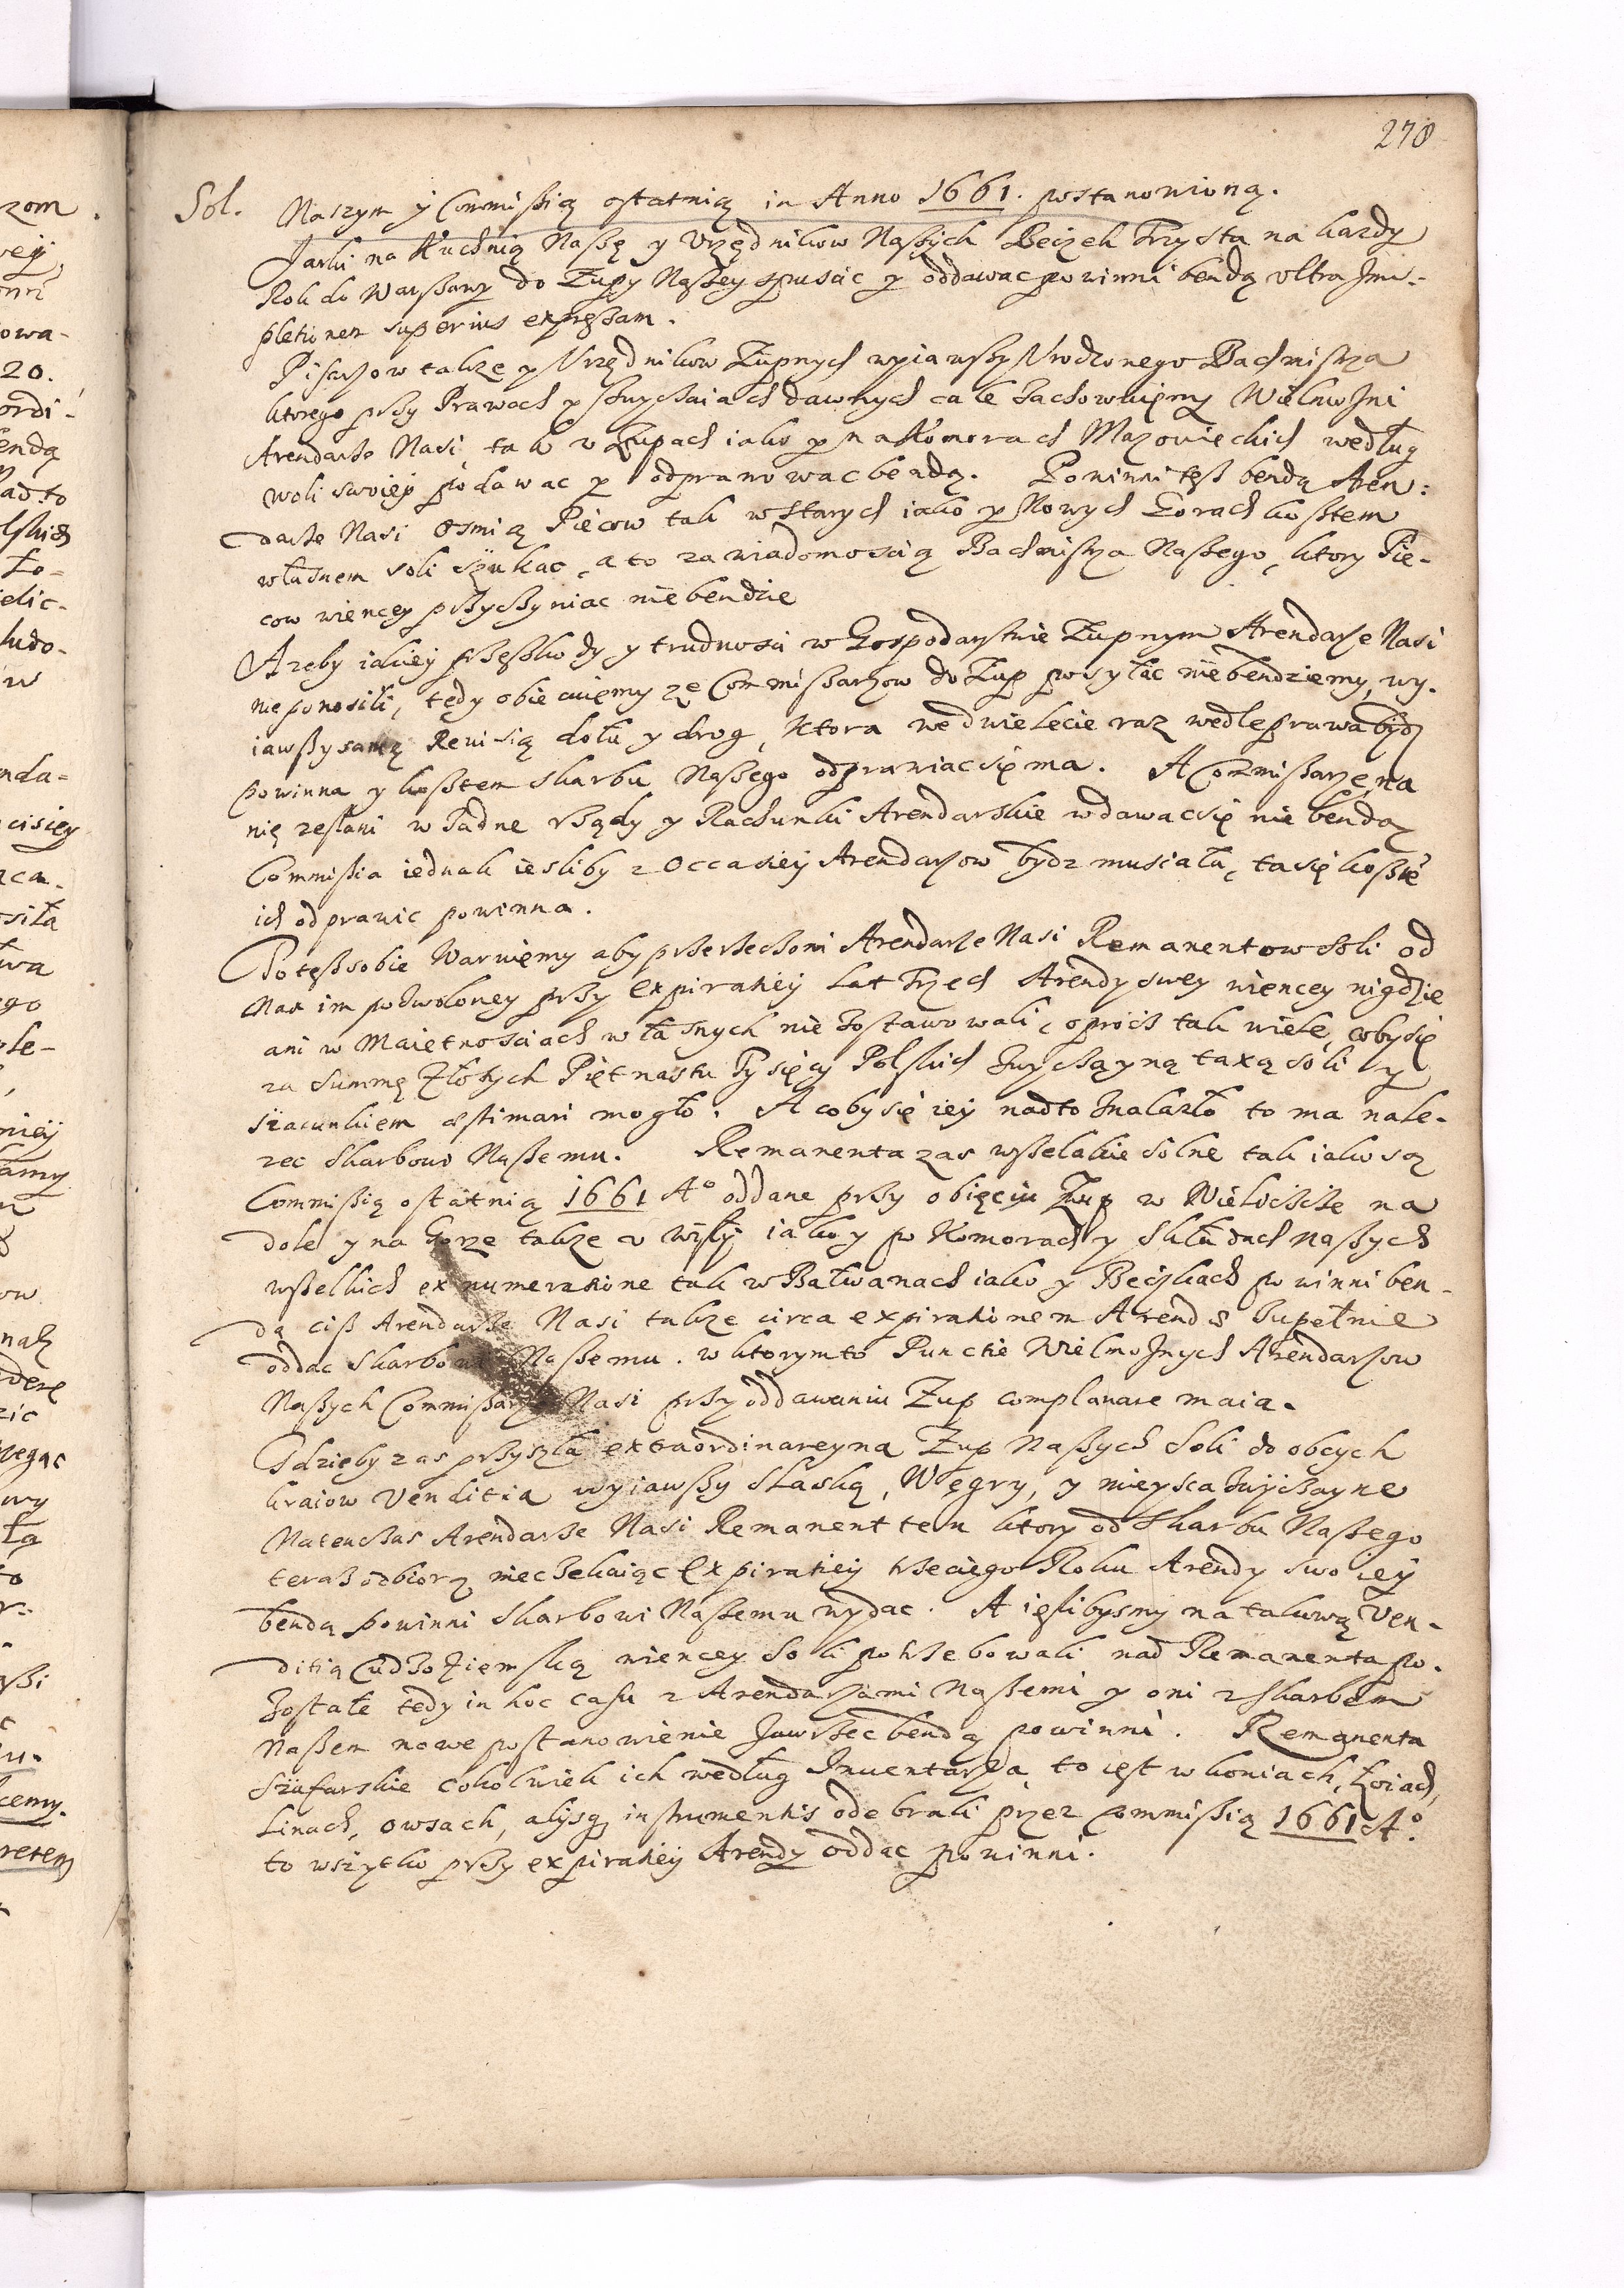 278
Sol. Naszym y Commißią ostatnią in Anno 1661. postanowioną.
Jarki na Kuchnią Naßę y Vrzędnikow Naßych Beczek Trzysta na kazdy
Rok do Warßawy do Zupy Naßey spuscic y oddawac powinni bendą vltra Jm-
pletionem superius expreßam.
Pisarzow takze y Vrzędnikow Zupnych wyiawßy Vrodzonego Bachmistrza
ktorego przy Prawach y zwyczaiach dawnych cale zachowuięmy Wielmozni
Arendarze Nasi, tak w Zupach iako y na Komorach Mazowieckich według
woli swoięy podawac y odprawowac bendą. Powinni teß bendą Aren:
darze Nasi Osmią Piecow tak w Starych iako y Nowych Gorach koßtem
własnem soli szukac, a to za wiadomoscią Bachmistrza Naßego, ktory Pie-
cow wiencey przyczyniac nie bendzie
A zeby iakięy przeßkody y trudnosci w Gospodarstwie Zupnym Arendarze Nasi
nie ponosili, tedy obiecuięmy ze Commißarzow do Zup posyłac nie bendziemy, wy-
iawßy samą Rewisią dołu y drog, ktora we dwie lecie raz wedle prawa bydz
powinna y koßtem Skarbu Naßego odprawiac się ma. A Commißarze na
nię zesłani w żadne rządy y Rachunki Arendarskie wdawac się nie bendą
Commißia iednak iesliby z Occasięy Arendarzow bydz musiała, ta się koßtē
ich odprawic powinna.
Po teß sobie Waruięmy aby przerzeczoni Arendarze Nasi Remanentow Soli od
Nas im pozwoloney przy expiratięy Lat Trzech Arendy swey wiencey nigdzie
ani w Maiętnosciach własnych nie zostawowali, oprocz tak wiele, coby się
za Summę Złotych Piętnastu Tysięcy Polskich zwyczayną taxą soli y
szacunkiem æstimari mogło. A coby się iey nadto znalazło to ma nale-
zec Skarbowi Naßemu. Remanenta zas wßelakie solne tak iako są
Commißią ostatnią 1661 A° oddane przy obięciu Zup w Wieliczcze na
dole y na Gorze takze v Wisły iako y po Komorach y Składach Naßych
wßelkich ex numeratione tak w Bałwanach iako y Beczkach powinni ben-
dą ciß Arendarze Nasi takze circa expirationem Arendæ zupełnie
oddac Skarbowi Naßemu. w ktorym to Punctie Wielmoznych Arendarzow
Naßych Commißarze Nasi przy oddawaniu Zup complanare maia.
Gdzieby zas przyszła extraordinareyna Zup Naßych Soli do obcych
kraiow Venditia wyiawßy Sląską, Węgry, y mieysca zwyczayne
Natenczas Arendarze Nasi Remanent ten ktory od Skarbu Naßego
teraz odbiorą nieczekaiąc expiratięy trzeciego Roku Arendy swoięy
bendą powinni Skarbowi Naßemu wydac. A ięslibysmy na takową Ven-
ditią Cudzoziemską wiencey Soli potrzebowali nad Remanenta po-
zostałe tedy in hoc casu z Arendarzami Naßemi y oni z Skarbem
Naßem nowe postanowienie zawrzec bendą powinni. Remanenta
Szafarskie cokolwiek ich według Inwentarza, to iest w koniach, Łoiach,
Linach, owsach, alijsq; instrumentis odebrali przez Commißią 1661 A°.
to wszytko przy expiratięy Arendy oddac powinni.